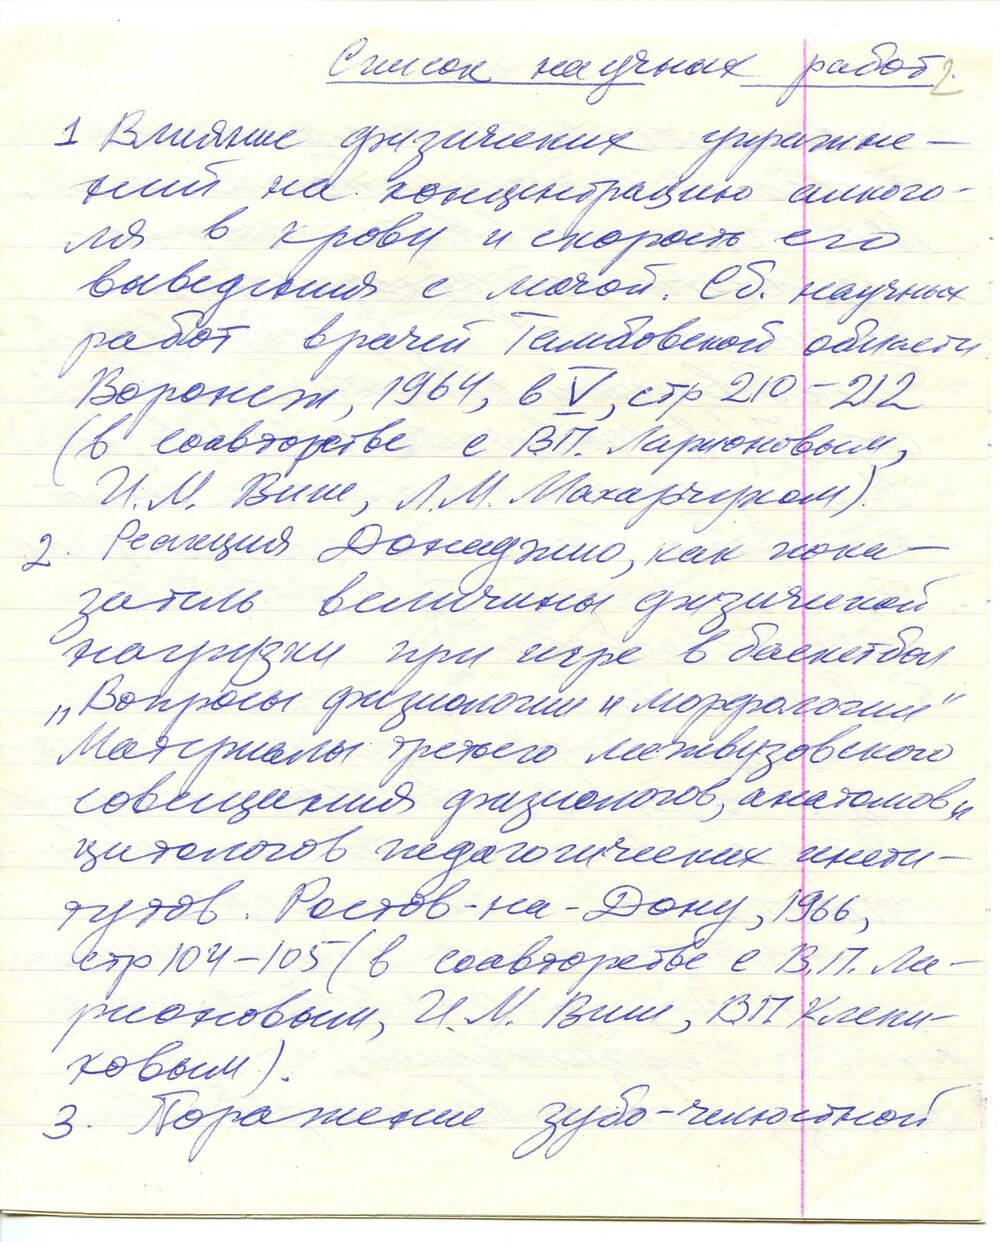 Список научных работ.
2
1 Влияние физических упражне-
ний на концентрацию алкого-
ля в крови и скорость его
выведения с мочой. Сб. научных
работ врачей Тамбовской области
Воронеж, 1964, в V, стр 210-212
(в соавторстве с ВП. Ларионовым,
И.М. Виш, Л.М. Махарчуком).
2. Реакция Донаджио, как пока-
затель величины физической
нагрузки при игре в баскетбол
„Вопросы физиологии и морфологии"
Материалы третьего межвузовского
совещания физиологов, анатомов и
цитологов педагогических инсти-
тутов. Ростов-на-Дону, 1966,
стр 104-105 (в соавторстве с В.П. Ла-
рионовым, И.М. Виш, ВП Клепи-
ковым).
3. Поражение зубо-челюстной